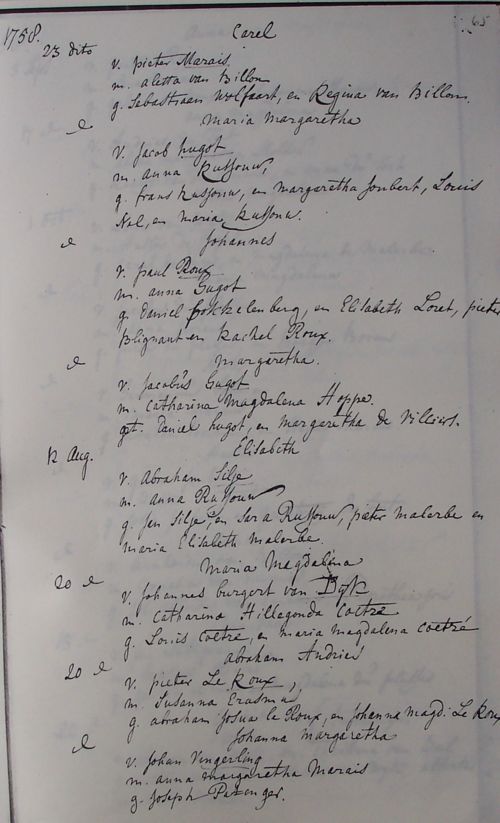 65
1758.
23 dito Carel
v. pieter Marais.
m. aletta van Billon
g. Sebastiaan Wolfaart, en Regina van Billon.
e maria margaretha
v. Jacob hugot
m. anna Russouw,
g. frans Russouw, en margaretha Joubert, Louis
Nel, en maria Russouw.
e Johannes
v. paul Roux
m. anna Gugot
g. Daniel Bokkelenberg, en Elisabeth Loret, pieter
Blignaut en Rachel Roux.
e margaretha.
v. Jacobus Gugot
m. Catharina Magdalena Hoppe.
get. Daniel hugot, en margaretha de Villiers.
12 Aug. Elisabeth
v. Abraham Silje
m. anna Russouw
g. Jan Silje, en Sara Russouw, pieter malerbe en
maria Elisabeth malerbe.
Maria Magdalena
20 e
v. Johannes burgert van Dyk
m. Catharina Hillegonda Coetzé
g. Louis Coetzé, en maria magdalena Coetzé
abraham Andries
20 e
v. pieter Le Roux,
m. Susanna Erasmus
g. abraham Josua le Roux, en Johanna magd: Le Roux
e Johanna Margaretha
v. Johan Vingerling
m. anna margaretha Marais
g. Joseph